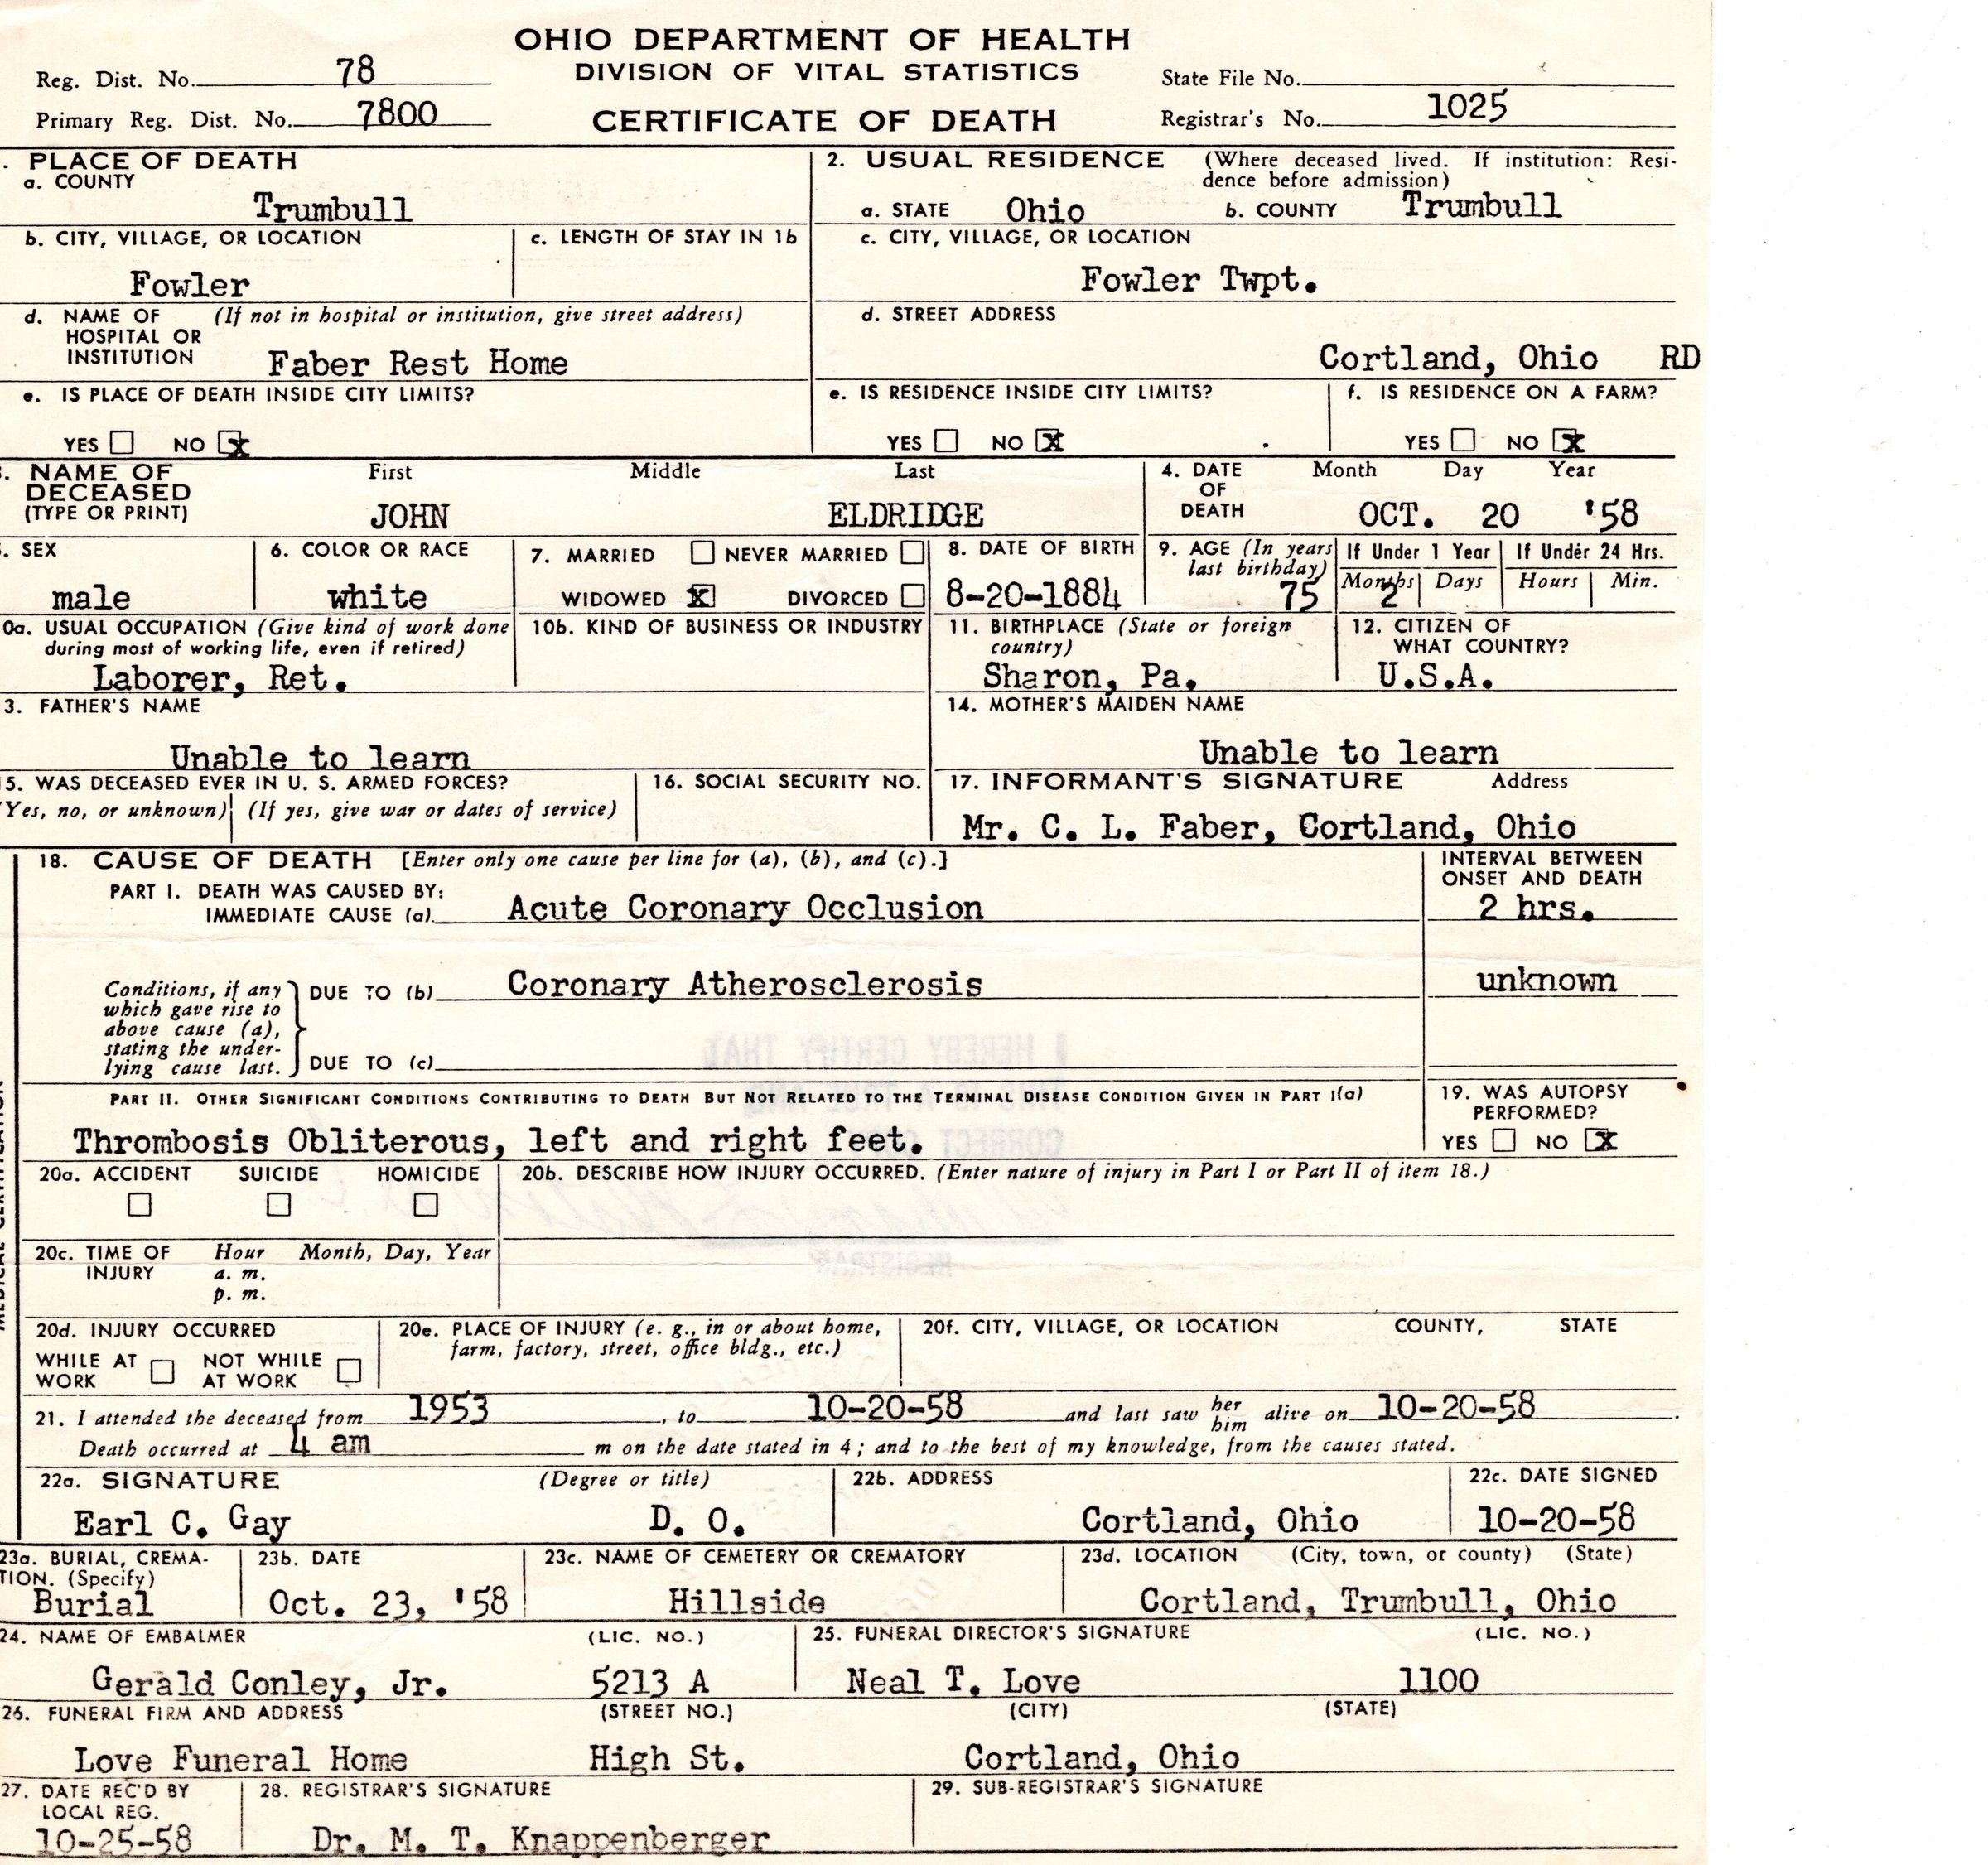 OHIO DEPARTMENT OF HEALTH
DIVISION OF VITAL STATISTICS
CERTIFICATE OF DEATH
Reg. Dist. No. 78
Primary Reg. Dist. No. 7800
State File No.
Registrar's No. 1025
. PLACE OF DEATH
a. COUNTY
Trumbull
b. CITY, VILLAGE, OR LOCATION
Fowler
c. LENGTH OF STAY IN 1b
d. NAME OF HOSPITAL OR INSTITUTION (If not in hospital or institution, give street address)
Faber Rest Home
e. IS PLACE OF DEATH INSIDE CITY LIMITS?
YES NO X
2. USUAL RESIDENCE (Where deceased lived. If institution: Resi-
dence before admission)
a. STATE Ohio b. COUNTY Trumbull
c. CITY, VILLAGE, OR LOCATION
Fowler Twpt.
d. STREET ADDRESS
Cortland, Ohio RD
e. IS RESIDENCE INSIDE CITY LIMITS?
YES NO X
f. IS RESIDENCE ON A FARM?
YES NO X
. NAME OF DECEASED (TYPE OR PRINT)
First Middle Last
JOHN ELDRIDGE
4. DATE OF DEATH
Month Day Year
OCT. 20 '58
. SEX
male
6. COLOR OR RACE
white
7. MARRIED NEVER MARRIED
WIDOWED X DIVORCED
8. DATE OF BIRTH
8-20-1884
9. AGE (In years last birthday)
75
If Under 1 Year
Months Days
2
If Under 24 Hrs.
Hours Min.
0a. USUAL OCCUPATION (Give kind of work done
during most of working life, even if retired)
Laborer, Ret.
10b. KIND OF BUSINESS OR INDUSTRY
11. BIRTHPLACE (State or foreign
country)
Sharon, Pa.
12. CITIZEN OF
WHAT COUNTRY?
U.S.A.
3. FATHER'S NAME
Unable to learn
14. MOTHER'S MAIDEN NAME
Unable to learn
15. WAS DECEASED EVER IN U. S. ARMED FORCES?
(Yes, no, or unknown) (If yes, give war or dates of service)
16. SOCIAL SECURITY NO.
17. INFORMANT'S SIGNATURE Address
Mr. C. L. Faber, Cortland, Ohio
18. CAUSE OF DEATH [Enter only one cause per line for (a), (b), and (c).]
PART I. DEATH WAS CAUSED BY:
IMMEDIATE CAUSE (a) Acute Coronary Occlusion
INTERVAL BETWEEN
ONSET AND DEATH
2 hrs.
Conditions, if any
which gave rise to
above cause (a),
stating the under-
lying cause last.
DUE TO (b) Coronary Atherosclerosis
unknown
DUE TO (c)
PART II. OTHER SIGNIFICANT CONDITIONS CONTRIBUTING TO DEATH BUT NOT RELATED TO THE TERMINAL DISEASE CONDITION GIVEN IN PART I(a)
Thrombosis Obliterous, left and right feet.
19. WAS AUTOPSY
PERFORMED?
YES NO X
20a. ACCIDENT SUICIDE HOMICIDE
20b. DESCRIBE HOW INJURY OCCURRED. (Enter nature of injury in Part I or Part II of item 18.)
20c. TIME OF INJURY
Hour Month, Day, Year
a. m.
p. m.
20d. INJURY OCCURRED
WHILE AT WORK NOT WHILE AT WORK
20e. PLACE OF INJURY (e. g., in or about home,
farm, factory, street, office bldg., etc.)
20f. CITY, VILLAGE, OR LOCATION COUNTY, STATE
21. I attended the deceased from 1953, to 10-20-58 and last saw her him alive on 10-20-58.
Death occurred at 4 am m on the date stated in 4; and to the best of my knowledge, from the causes stated.
22a. SIGNATURE (Degree or title)
Earl C. Gay D. O.
22b. ADDRESS
Cortland, Ohio
22c. DATE SIGNED
10-20-58
23a. BURIAL, CREMA-
TION. (Specify)
Burial
23b. DATE
Oct. 23, '58
23c. NAME OF CEMETERY OR CREMATORY
Hillside
23d. LOCATION (City, town, or county) (State)
Cortland, Trumbull, Ohio
24. NAME OF EMBALMER (LIC. NO.)
Gerald Conley, Jr. 5213 A
25. FUNERAL DIRECTOR'S SIGNATURE (LIC. NO.)
Neal T. Love 1100
26. FUNERAL FIRM AND ADDRESS (STREET NO.) (CITY) (STATE)
Love Funeral Home High St. Cortland, Ohio
27. DATE REC'D BY
LOCAL REG.
10-25-58
28. REGISTRAR'S SIGNATURE
Dr. M. T. Knappenberger
29. SUB-REGISTRAR'S SIGNATURE